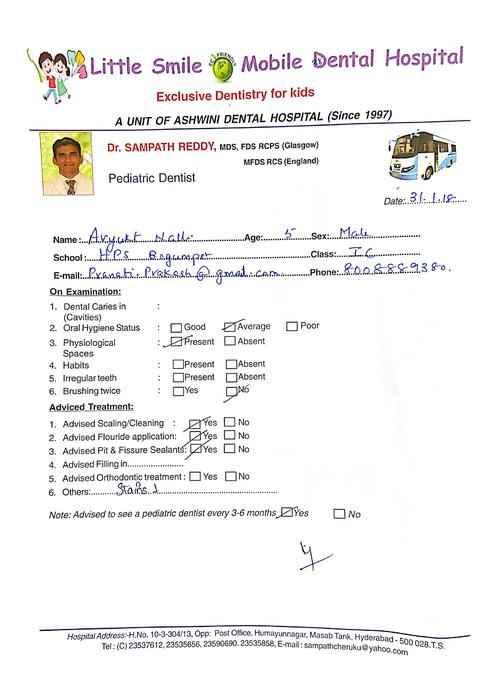 Little Smile Mobile Dental Hospital
Exclusive Dentistry for kids
A UNIT OF ASHWINI DENTAL HOSPITAL (Since 1997)
Dr. SAMPATH REDDY, MDS, FDS RCPS (Glasgow)
MFDS RCS (England)
Pediatric Dentist
Date: 31.1.18
Name: Aryukt Nalli Age: 5 Sex: Male
School: HPS Begumpet Class: I C
E-mail: Pranati.Prakash@gmail.com Phone: 8008889380.
On Examination:
1. Dental Caries in :
(Cavities)
2. Oral Hygiene Status : Good Average Poor
3. Physiological : Present Absent
Spaces
4. Habits : Present Absent
5. Irregular teeth : Present Absent
6. Brushing twice : Yes No
Adviced Treatment:
1. Advised Scaling/Cleaning : Yes No
2. Advised Flouride application: Yes No
3. Advised Pit & Fissure Sealants: Yes No
4. Advised Filling in....................
5. Advised Orthodontic treatment : Yes No
6. Others: Stains
Note: Advised to see a pediatric dentist every 3-6 months Yes No
Hospital Address:-H.No. 10-3-304/13, Opp: Post Office, Humayunnagar, Masab Tank, Hyderabad - 500 028.T.S.
Tel : (C) 23537612, 23535656, 23590690. 23535858, E-mail : sampathcheruku@yahoo.com